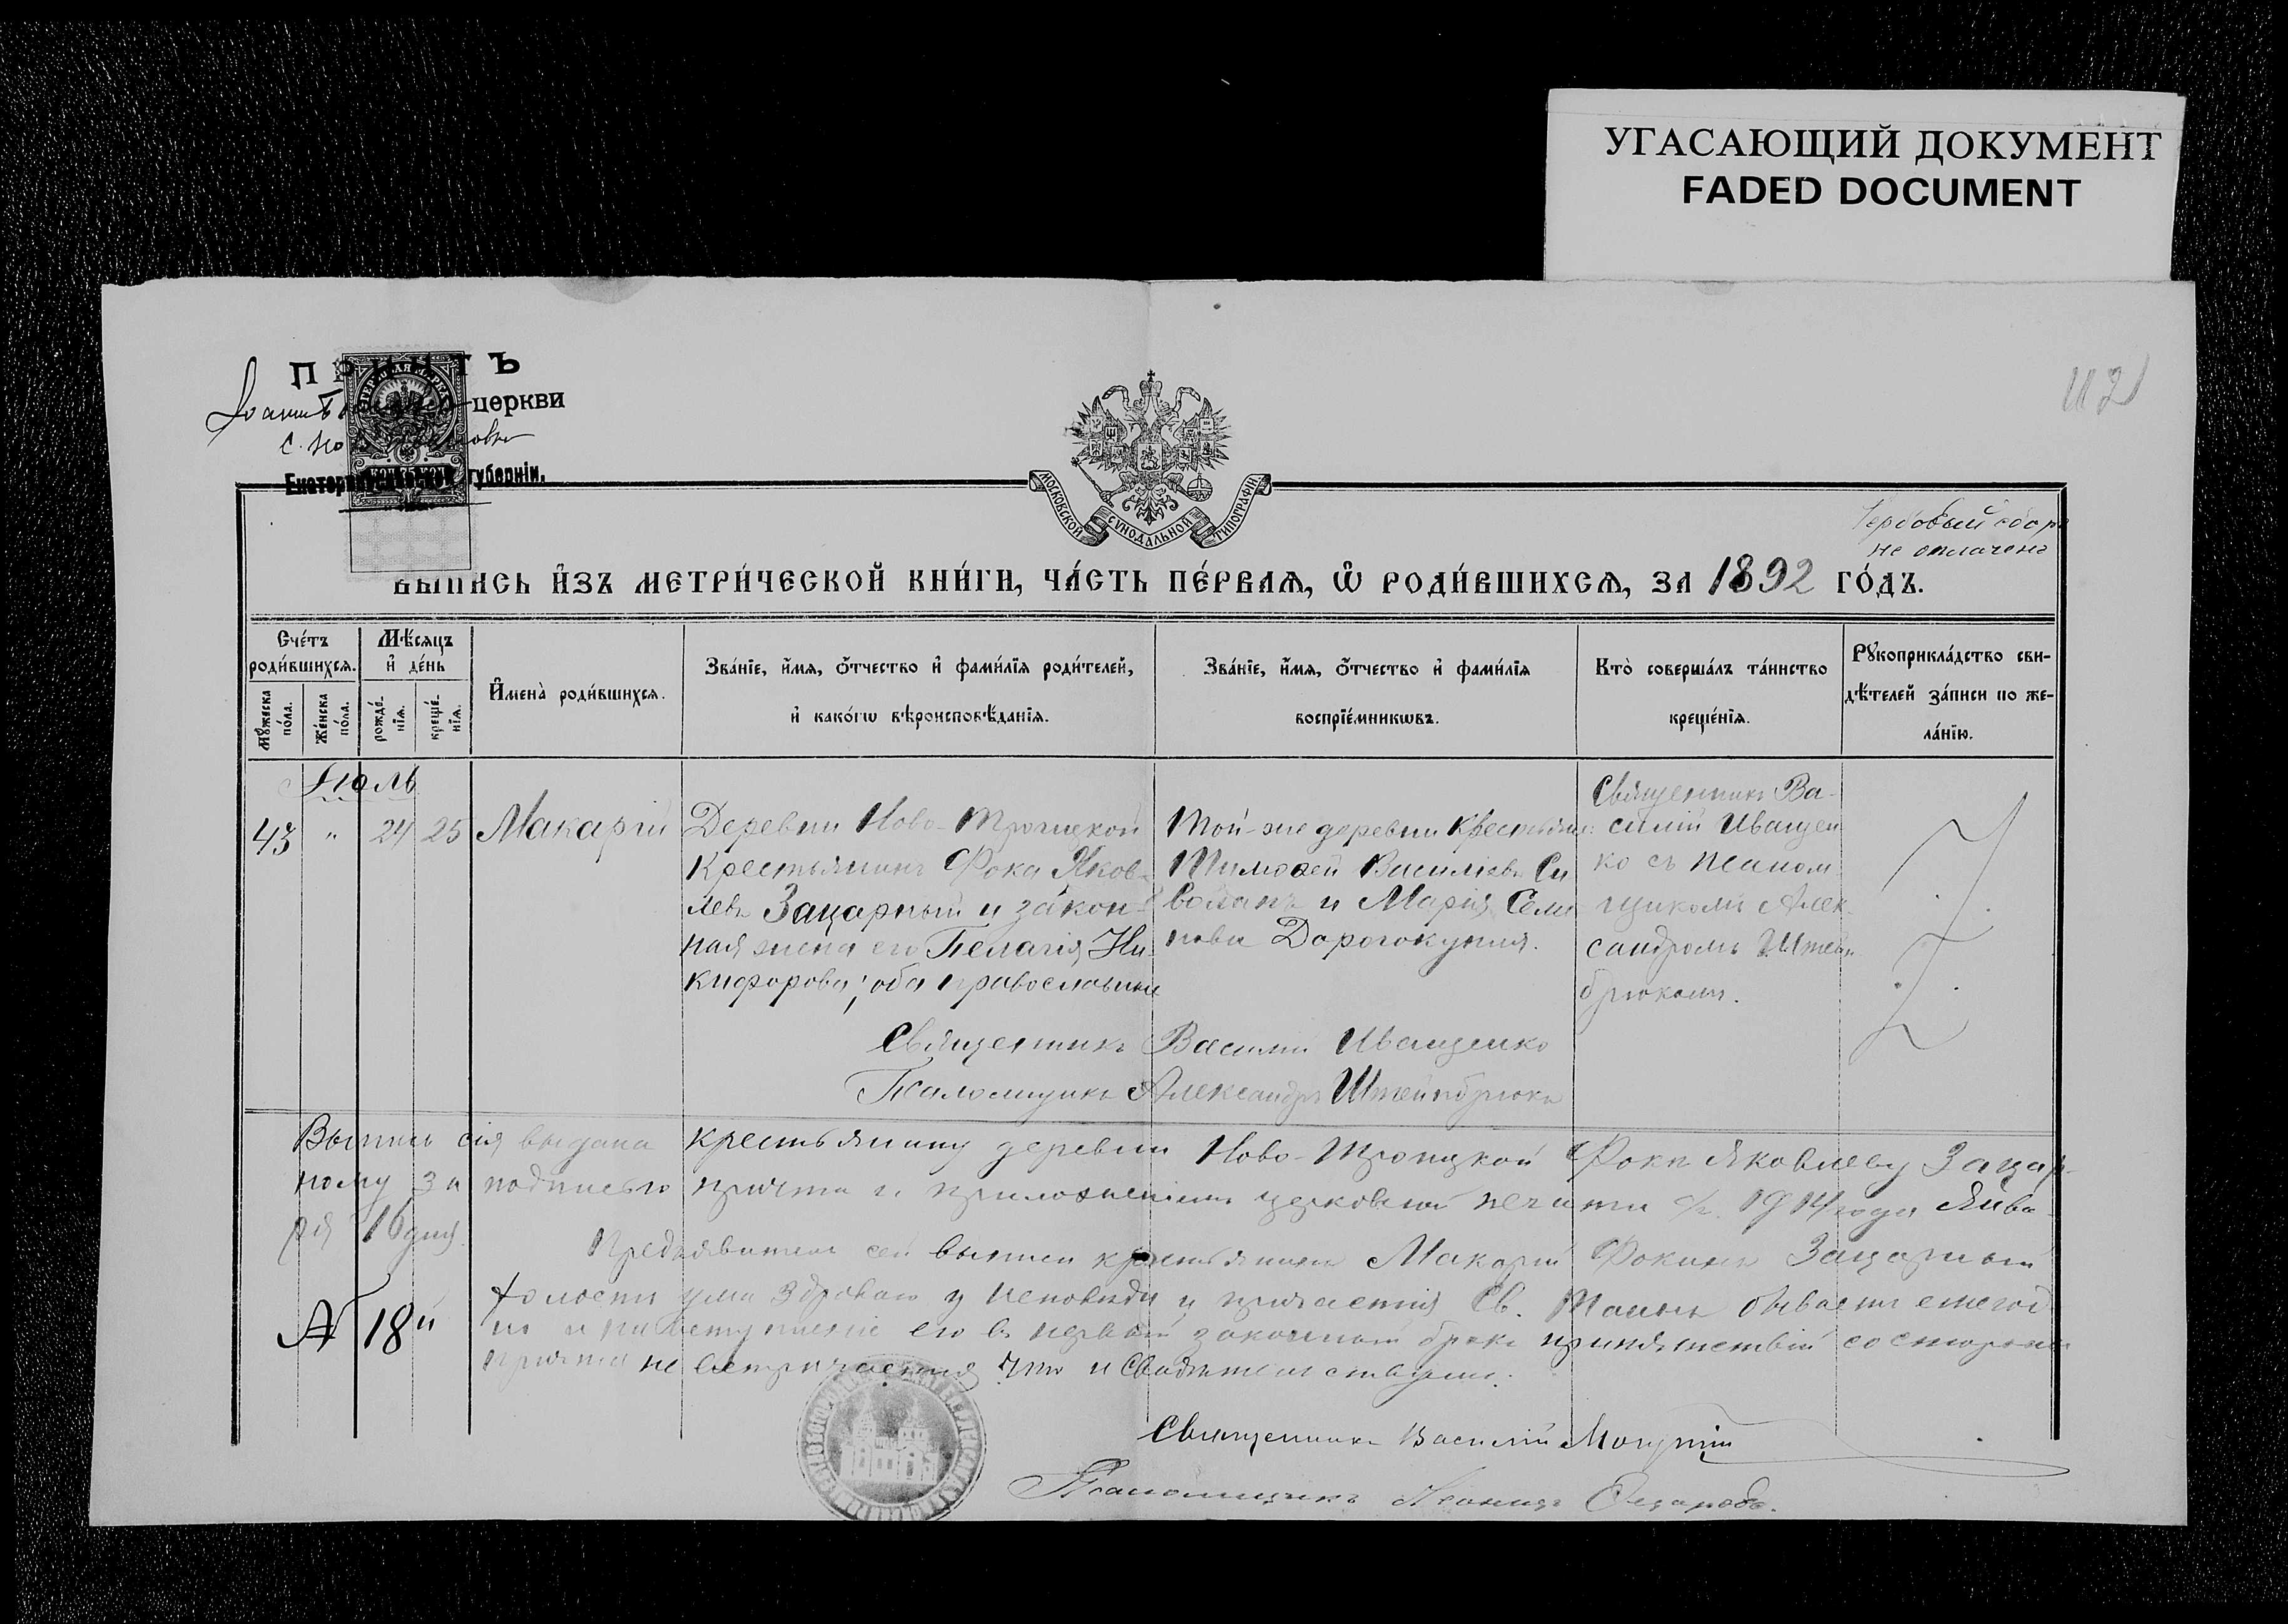 УГАСАЮЩИЙ ДОКУМЕНТ
FADED DOCUMENT
ПРИЧТЪ
церкви
с.
Екатеринославской губерніи.
МОСКОВСКОЙ СѴНОДАЛЬНОЙ ТИПОГРАФІИ
Гербовый сборъ
не оплаченъ
ВЫПИСЬ И҆ЗЪ МЕТРИ́ЧЕСКОЙ КНИ́ГИ, ЧА́СТЬ ПЕ́РВАЯ, Ѽ РОДИ́ВШИХСЯ, ЗА 1892 ГО́ДЪ.
Сче́тъ роди́вшихся.
Му́жеска по́ла.
Же́нска по́ла.
Мѣ́сяцъ и҆ де́нь
рожде́нїя.
креще́нїя.
И҆мена̀ роди́вшихся.
Зва́нїе, и҆́мя, ѻ҆́тчество и҆ фами́лїя роди́телей,
и҆ како́гѡ вѣроисповѣ́данїя.
Зва́нїе, и҆́мя, ѻ҆́тчество и҆ фами́лїя
воспрїе́мникѡвъ.
Кто̀ соверша́лъ та́инство
креще́нїя.
Рꙋкоприкла́дство сви-
дѣ́телей за́писи по же-
ла́нїю.
Іюль
43 " 24 25 Макарій
Деревни Ново-Троицкой
крестьянинъ Фока Яков-
левъ Зацарный и закон-
ная жена его Пелагія Ни-
кифорова; оба православные
Той-же деревни крестьян:
Тимофей Василіевъ Си
воланъ и Марія Семе
нова Дорогокупля.
Священникъ Ва-
силій Иващен
ко съ псалом
щикомъ Алек
сандромъ Штейн
брюкомъ.
Священникъ Василій Иващенко
Псаломщикъ Александръ Штейнбрюкъ
Выпись сія выдана крестьянину деревни Ново-Троицкой Фокѣ Яковлеву Зацар-
ному за подписью причта и приложеніемъ церковной печати 1914 года Янва-
ря 16 дня.
Предъявитель сей выписи крестьянинъ Макарій Фокинъ Зацарный
ума здраваго у исповѣди и причастія Св. Таинъ бываетъ ежегод
но и на вступленіе его въ первый законный бракъ препятствій со стороны
причта не встрѣчается что и свидѣтельствуемъ.
№ 18й
Священникъ Василій
Псаломщикъ Леонидъ